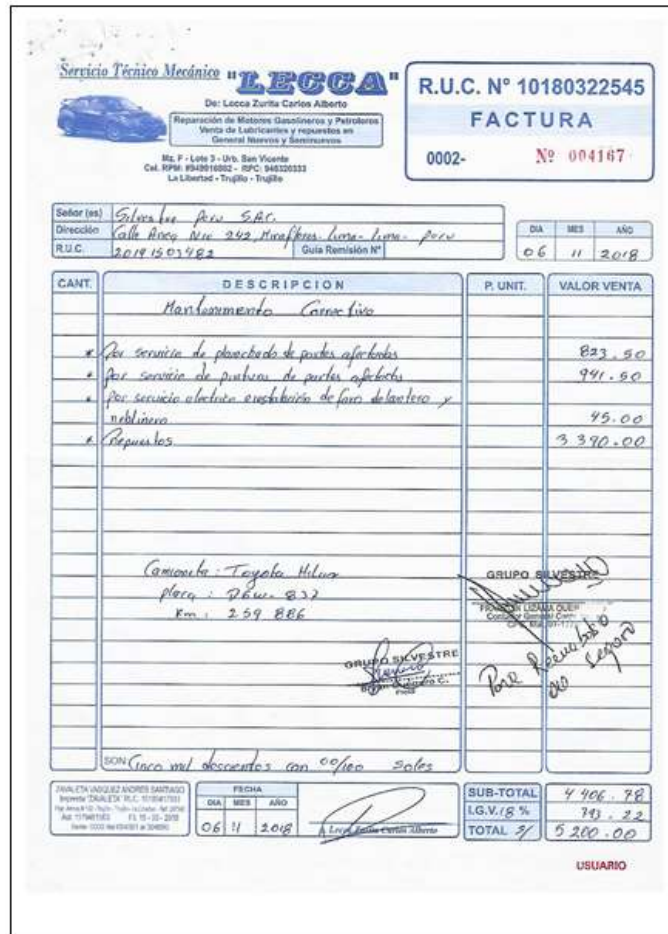 Servicio Técnico Mecánico "LECCA"
De: Lecca Zurita Carlos Alberto
Reparación de Motores Gasolineros y Petroleros
Venta de Lubricantes y repuestos en
General Nuevos y Seminuevos
Mz. F - Lote 3 - Urb. San Vicente
La Libertad - Trujillo - Trujillo
R.U.C. Nº 10180322545
FACTURA
0002- Nº 004167
Señor (es) Silvestre Peru S.A.C.
Dirección Calle Nro 242, Miraflores - Lima - Lima - Peru
R.U.C. 20191503482 Guía Remisión Nº
DIA MES AÑO
06 11 2018
CANT. DESCRIPCION P. UNIT. VALOR VENTA
Mantenimiento Correctivo
* Por servicio de planchado de partes afectadas 823.50
* Por servicio de pintura de partes afectadas 941.50
* Por servicio electrico de faro delantero y
neblinero 45.00
* Repuestos 3 390.00
Camioneta : Toyota Hilux
placa : 832
Km : 259 886
GRUPO SILVESTRE
GRUPO SILVESTRE
Para Reembolso
Seguro
SON Cinco mil doscientos con 00/100 Soles
ZAVALETA VASQUEZ ANDRES SANTIAGO
FECHA
DIA MES AÑO
06 11 2018
Lecca Zurita Carlos Alberto
SUB-TOTAL 4 406.78
I.G.V. 18 % 793.22
TOTAL S/ 5 200.00
USUARIO